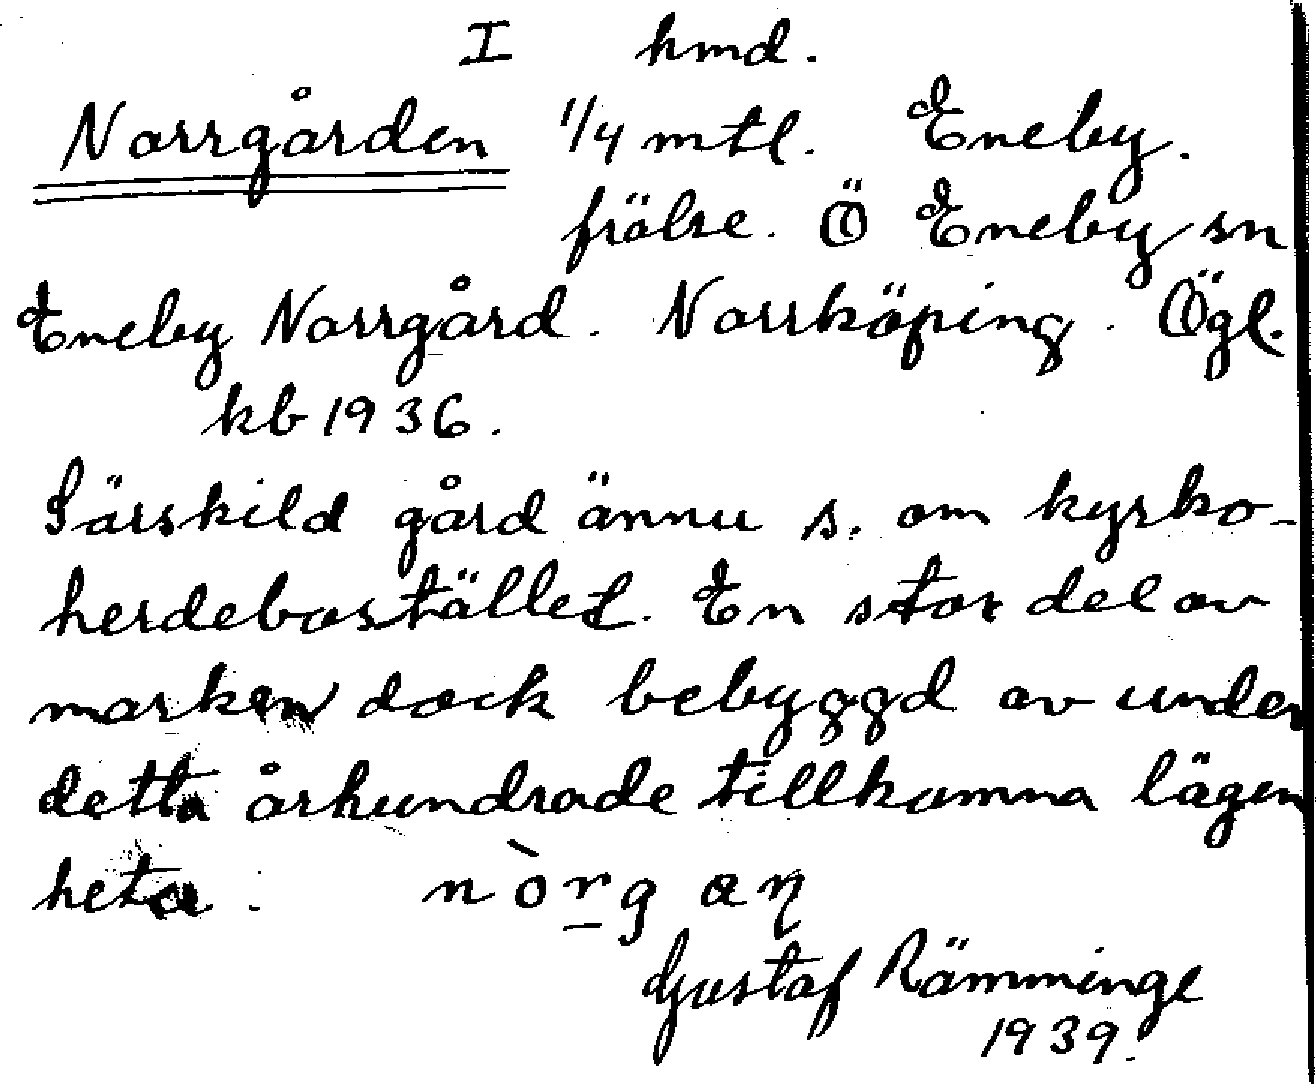 I hmd.
Norrgården 1/4 mtl. Eneby.
frälse. Ö Eneby sn
Eneby Norrgård. Norrköping. Ögl.
kb 1936.
Särskild gård ännu s. om kyrko-
herdebostället. En stor del av
marken dock bebyggd av under
detta århundrade tillkomna lägen
heter. nòrg aŋ
Gustaf Rämminge
1939.